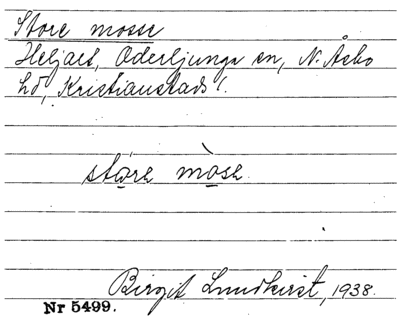 Store mosse
Heljaes, Oderljunga sn, N. Åsbo
hd, Kristianstads l.
stóre mòse
Birgit Lundkvist, 1938.
Nr 5499.